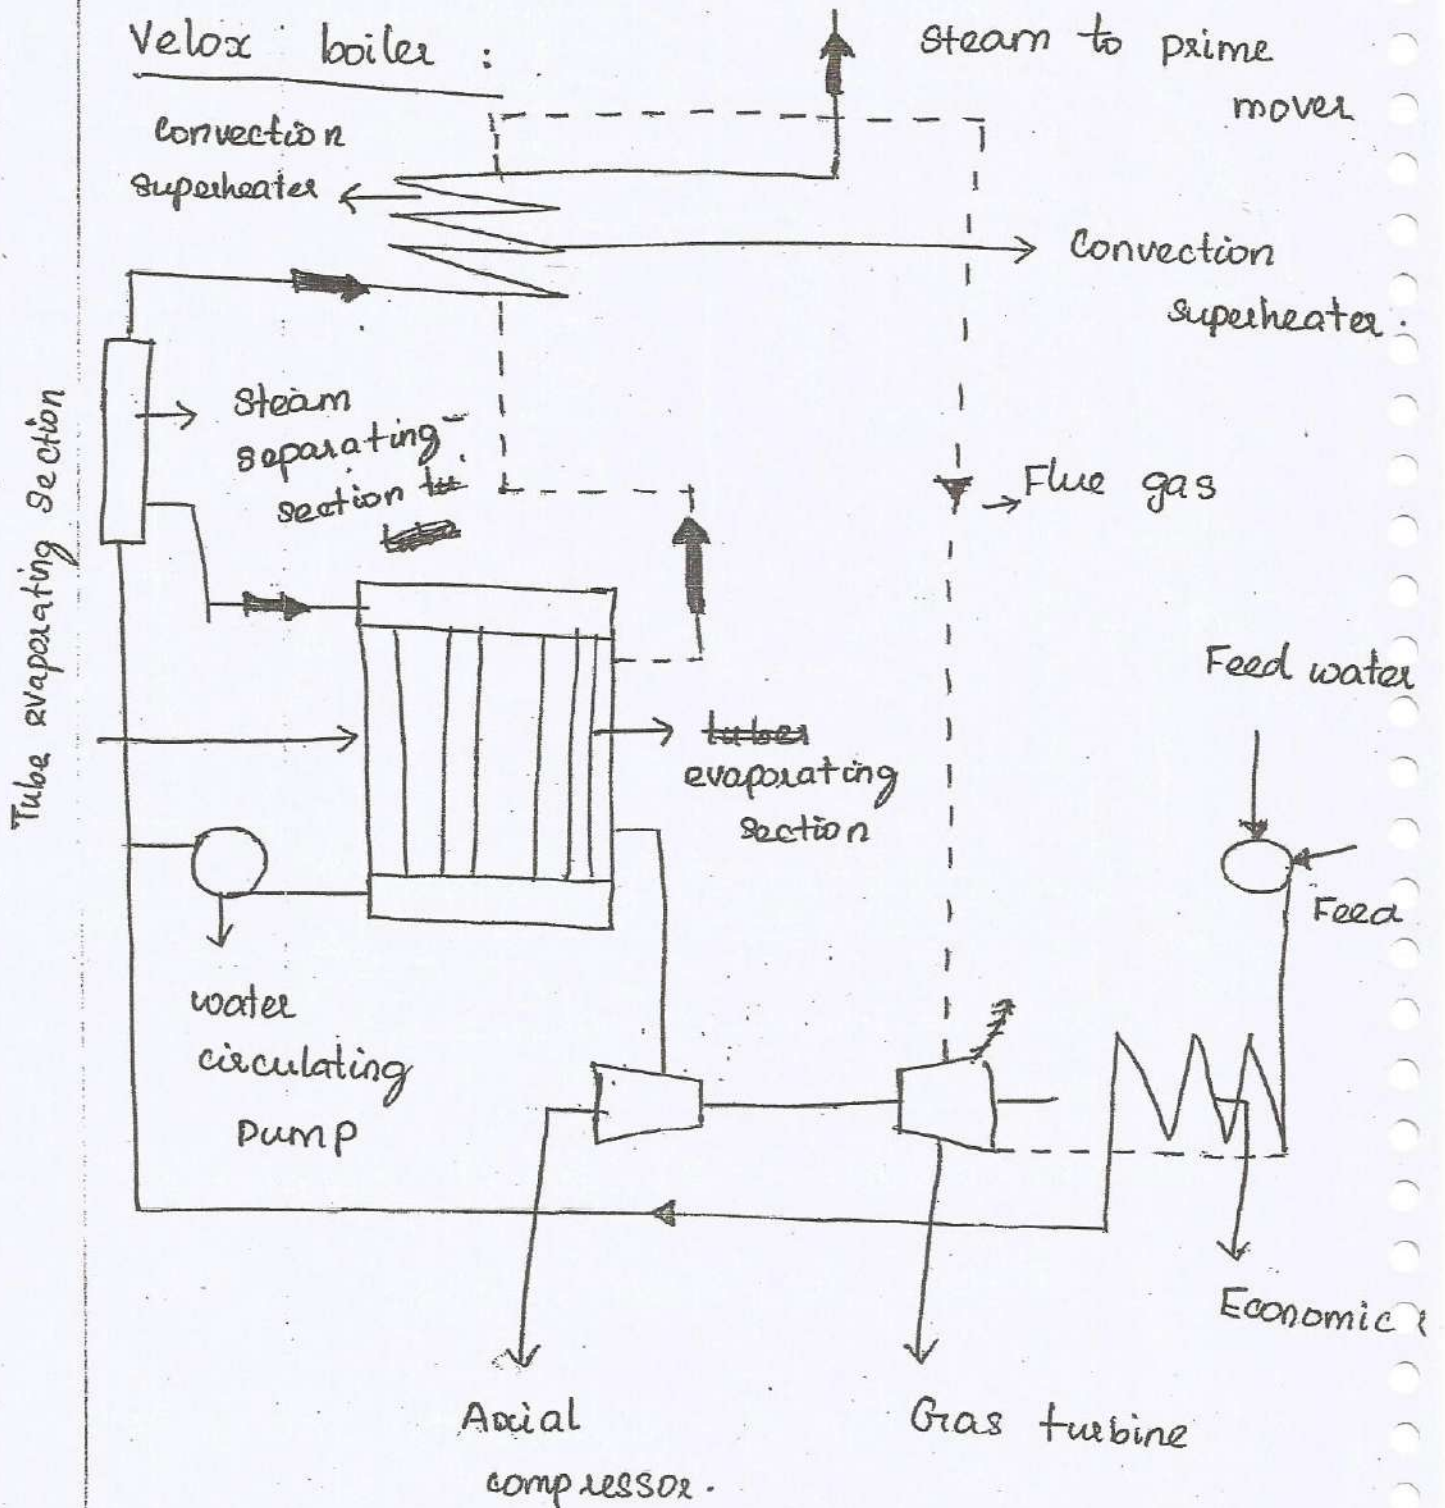 Velox boiler :
Steam to prime
mover
Convection
superheater
Convection
superheater.
Steam
separating
section
Tube evaporating section
Flue gas
Feed water
tubes
evaporating
section
Feed
water
circulating
pump
Economic
Axial
compressor.
Gas turbine